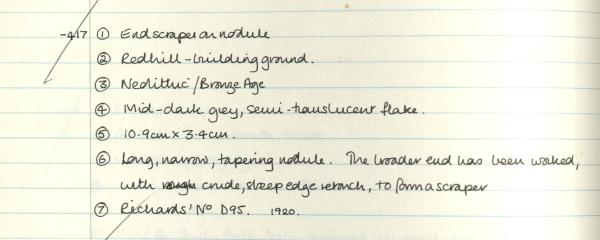 -417 ① Endscraper on nodule
② Redhill - building ground.
③ Neolithic/Bronze Age
④ Mid-dark grey, semi-translucent flake.
⑤ 10.9cm x 3.4cm.
⑥ Long, narrow, tapering nodule. The broader end has been worked,
with rough crude, steep edge retouch, to form a scraper
⑦ Richards' No D95. 1920.